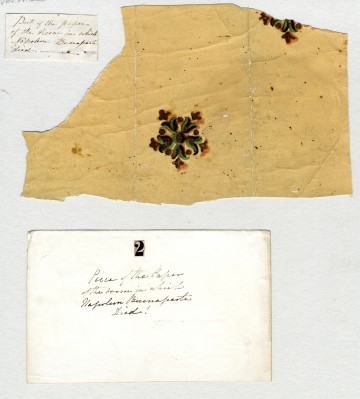 Part of the paper
of the room in which
Napoleon Buonaparte
died
2
Piece of the Paper
of the room in which
Napoleon Buonaparte
Died!